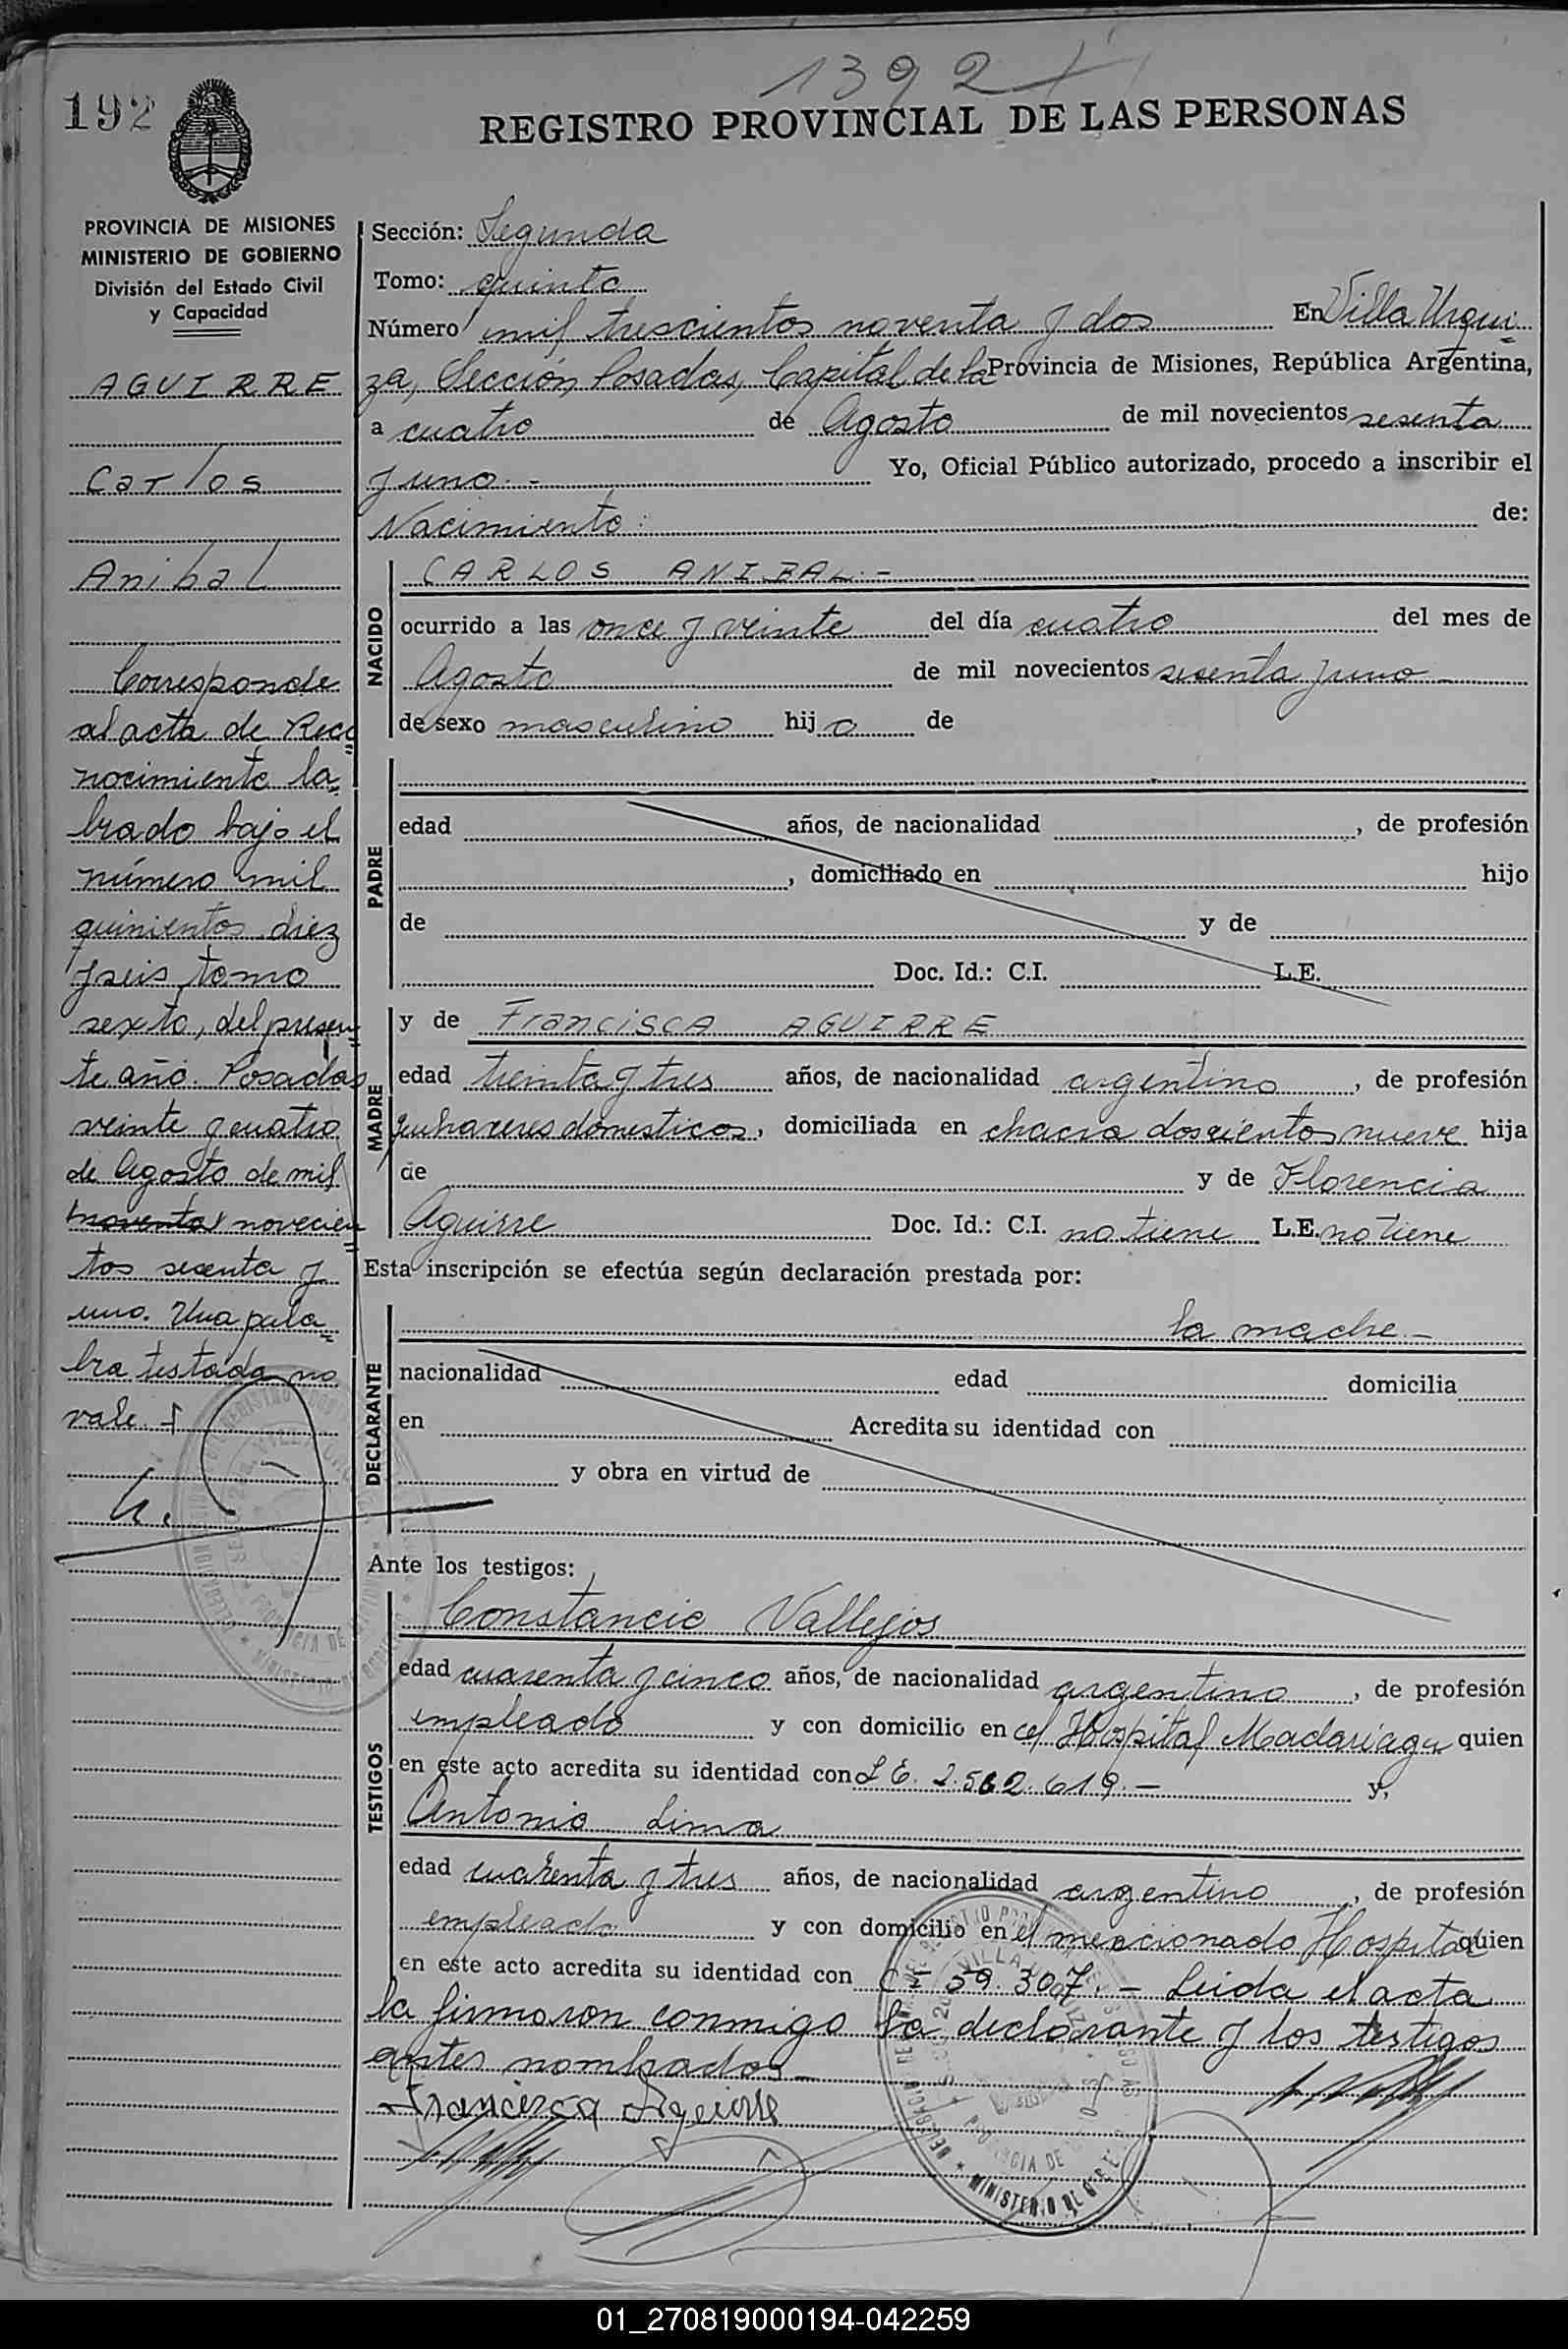 1392
192
REGISTRO PROVINCIAL DE LAS PERSONAS
PROVINCIA DE MISIONES
MINISTERIO DE GOBIERNO
División del Estado Civil
y Capacidad
AGUIRRE
Carlos
Anibal
Corresponde
al acta de Reco
nocimiento la
brado bajo el
número mil
quinientos diez
y seis, tomo
sexto, del presen
te año. Posadas
veinte y cuatro
de Agosto de mil
noventa novecien
tos sesenta y
uno. Una pala
bra testada no
vale.
Sección: Segunda
Tomo: quinto
Número mil trescientos noventa y dos En Villa Urqui
za, Sección Posadas, Capital de la Provincia de Misiones, República Argentina,
a cuatro de Agosto de mil novecientos sesenta
y uno.- Yo, Oficial Público autorizado, procedo a inscribir el
Nacimiento: de:
NACIDO
CARLOS ANIBAL.-
ocurrido a las once y veinte del día cuatro del mes de
Agosto de mil novecientos sesenta y uno
de sexo masculino hijo de
PADRE
edad años, de nacionalidad , de profesión
, domiciliado en hijo
de y de
Doc. Id.: C.I. L.E.
MADRE
y de Francisca AGUIRRE
edad treinta y tres años, de nacionalidad argentino, de profesión
quehaceres domesticos, domiciliada en chacra doscientos nueve hija
de y de Florencia
Aguirre Doc. Id.: C.I. no tiene L.E. no tiene
Esta inscripción se efectúa según declaración prestada por:
DECLARANTE
la madre.-
nacionalidad edad domicilia
en Acredita su identidad con
y obra en virtud de
Ante los testigos:
TESTIGOS
Constancio Vallejos
edad cuarenta y cinco años, de nacionalidad argentino, de profesión
empleado y con domicilio en el Hospital Madariaga quien
en este acto acredita su identidad con L E. 2.562.619.- y,
Antonio Lima
edad cuarenta y tres años, de nacionalidad argentino, de profesión
empleado y con domicilio en el mencionado Hospital quien
en este acto acredita su identidad con C I 59.307.- Leida el acta
la firmaron conmigo la declarante y los testigos
antes nombrados.-
Francisca Aguirre
01_270819000194-042259